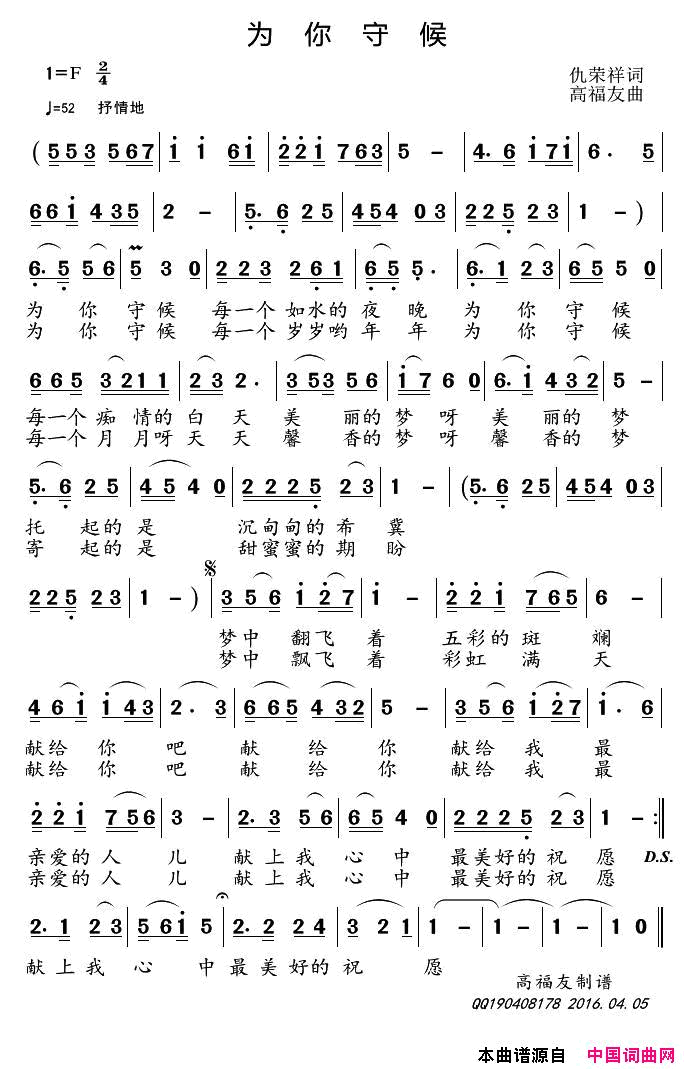 为 你 守 候
1=F 2/4
仇荣祥词
♩=52 抒情地
高福友曲
( 5 5 3 5 6 7 | 1 1 6 1 | 2 2 1 7 6 3 | 5 - | 4. 6 1 7 1 | 6. 5
6 6 1 4 3 5 | 2 - | 5. 6 2 5 | 4 5 4 0 3 | 2 2 5 2 3 | 1 - )
6. 5 5 6 | 5 3 0 | 2 2 3 2 6 1 | 6 5 5. | 6. 1 2 3 | 3 5 5 0
为 你 守 候 每一个 如水的 夜 晚 为 你 守 候
为 你 守 候 每一个 岁岁哟 年 年 为 你 守 候
6 6 5 3 2 1 1 | 2 3 2. | 3 5 3 5 | 1 7 6 0 | 6. 1 4 3 2 | 5 -
每一个 痴 情的 白 天 美 丽的 梦 呀 美 丽的 梦
每一个 月 月呀 天 天 馨 香的 梦 呀 馨 香的 梦
5. 6 2 5 | 4 5 4 0 | 2 2 2 5 2 3 | 1 - | (5. 6 2 5 | 4 5 4 0 3
托 起的 是 沉甸甸的 希 冀
寄 起的 是 甜蜜蜜的 期 盼
2 2 5 2 3 | 1 - ) | 3 5 6 1 2 7 | 1 - | 2 2 1 7 6 5 | 6 -
梦中 翻飞 着 五彩的 斑 斓
梦中 飘飞 着 彩虹 满 天
4 6 1 1 4 3 | 2. 3 | 6 6 5 4 3 2 | 5 - | 3 5 6 1 2 7 | 1. 6
献给 你 吧 献 给 你 献给 我 最
献给 你 吧 献 给 你 献给 我 最
2 2 1 7 5 6 | 3 - | 2. 3 5 6 | 6 5 4 0 | 2 2 2 5 2 3 | 1 - :||
亲爱的 人 儿 献 上 我 心 中 最美好的 祝 愿 D.S.
亲爱的 人 儿 献 上 我 心 中 最美好的 祝 愿
2. 1 2 3 | 5 6 1 5 | 2. 2 2 4 | 3 2 1 | 1 - | 1 - | 1 - | 1 0 ||
献 上 我 心 中 最 美 好的 祝 愿
高福友制谱
QQ190408178 2016.04.05
本曲谱源自 中国词曲网